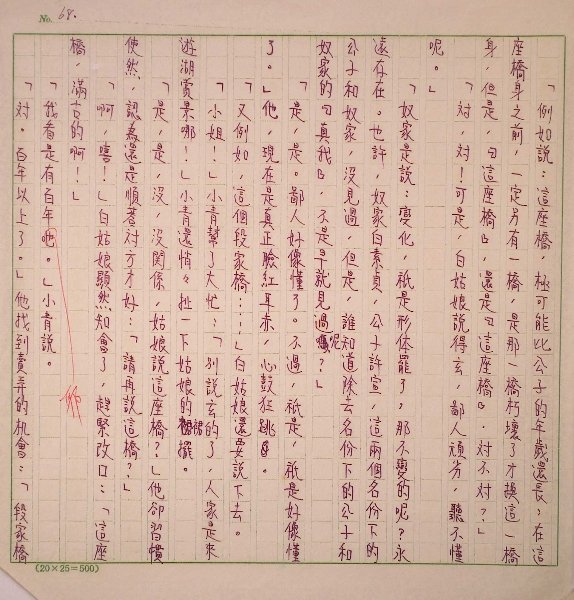 No. 68.
「例如說：這座橋，極可能比公子的年歲還長；在這
座橋身之前，一定另有一橋，是那一橋朽壞了才換這一橋
身，但是『這座橋』，還是『這座橋』。對不对？」
「对，对！可是，白姑娘說得玄，鄙人頑劣，聽不懂
呢。」
「奴家是說：變化，祇是形体罷了，那不變的呢？永
遠存在。也許，奴家白素貞，公子許宣，這兩個名份下的
公子和奴家，沒見過，但是，誰知道除去名份下的公子和
奴家的『真我』，不是早就見過呢？」
「是，是。鄙人好像懂了。不過，祇是，祇是好像懂
了。」他，現在是真正臉紅耳赤，心鼓狂跳。
「又例如，這個段家橋……」白姑娘還要說下去。
「小姐！」小青幫了大忙：「別說玄的了，人家是來
遊湖賞景哪！」小青還悄々扯一下姑娘的裙擺。
「是，是，沒，沒関係，姑娘說這座橋？」他卻習慣
使然，認為還是順著对方才好：「請再說這橋？」
「啊，嘻！」白姑娘顯然知會了，趕緊改口：「這座
橋，滿古的啊！」
「我看是有百年吧。」小青說。
「对。百年以上了。」他找到賣弄的机會：「段家橋
(20×25=500)